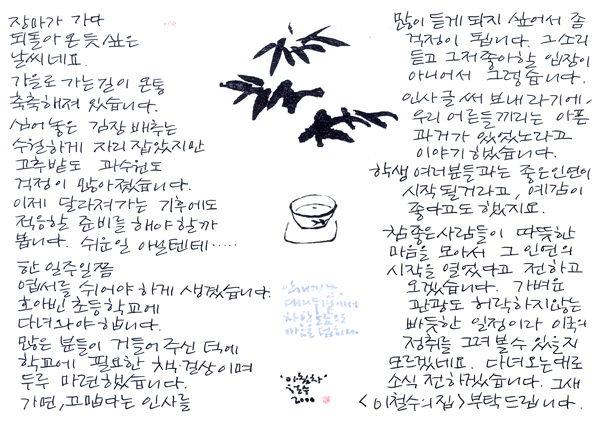 장마가 가다
되돌아 온 듯 싶은
날씨네요.
가을로 가는 길이 온통
축축해져 있습니다.
심어 놓은 김장 배추는
수월하게 자리 잡았지만
고추밭도 과수원도
걱정이 많아졌습니다.
이제 달라져가는 기후에도
적응할 준비를 해야 할까
봅니다. 쉬운일 아닐텐데·····
한 일주일쯤
엽서를 쉬어야 하게 생겼습니다.
호아빈 초등학교에
다녀와야 합니다.
많은 분들이 거들어 주신 덕에
학교에 필요한 책·걸상이며
두루 마련했습니다.
가면, 고맙다는 인사를
많이 듣게 되지 싶어서 좀
걱정이 됩니다. 그 소리
듣고 그저 좋아할 입장이
아니어서 그렇습니다.
인사글 써 보내라기에,
우리 어른들끼리는 아픈
과거가 있었노라고
이야기 했습니다.
학생 여러분들과는 좋은 인연이
시작될거라고, 예감이
좋다고도 했지요.
참 좋은 사람들이 따뜻한
마음을 모아서 그 인연의
시작을 열었다고 전하고
오겠습니다. 가벼운
관광도 허락하지 않는
빠듯한 일정이라 이국의
정취를 그려볼 수 있을지
모르겠네요. 다녀오는대로
소식 전하겠습니다. 그새
<이철수의 집> 부탁드립니다.
철수
2000